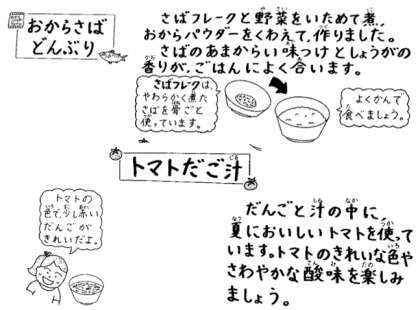 おからさば
どんぶり
さばフレークと野菜をいためて煮、
おからパウダーをくわえて、作りました。
さばのあまからい味つけとしょうがの
香りが、ごはんによく合います。
さばフレークは、
やわらかく煮た
さばを骨ごと
使っています。
よくかんで
食べましょう。
トマトだご汁
トマトの
色で、少し赤い
だんごが
きれいだよ。
だんごと汁の中に、
夏においしいトマトを使って
います。トマトのきれいな色や
さわやかな酸味を楽しみ
ましょう。